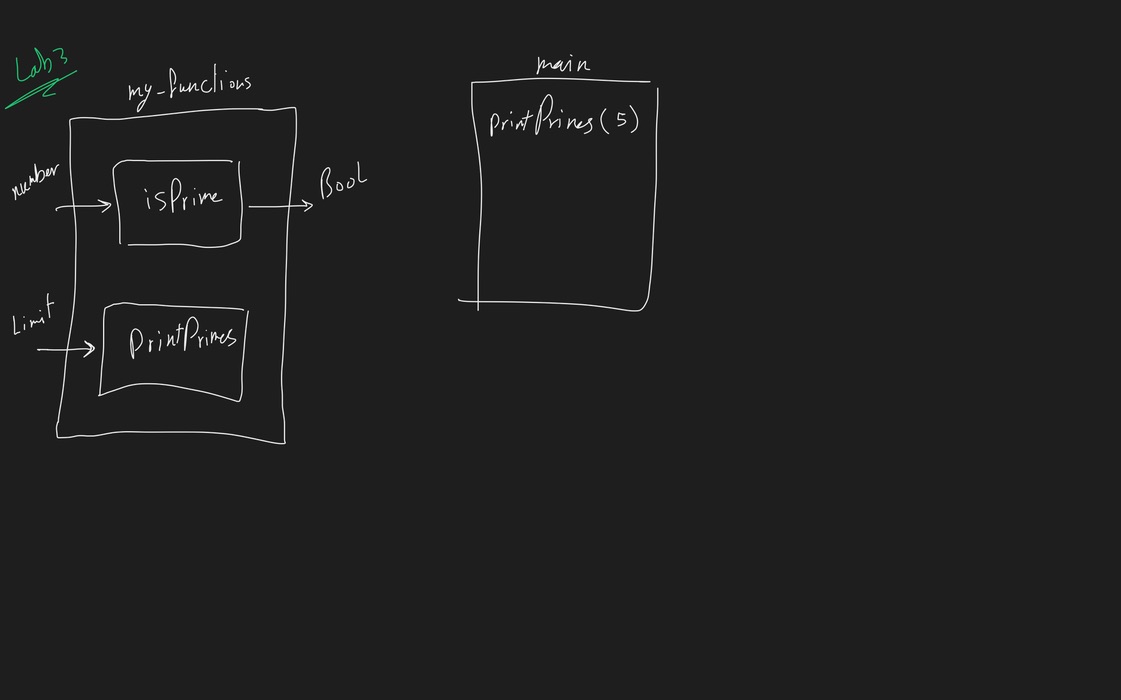 Lab3
my-functions
number
isPrime
Bool
Limit
printPrimes
main
printPrimes(5)